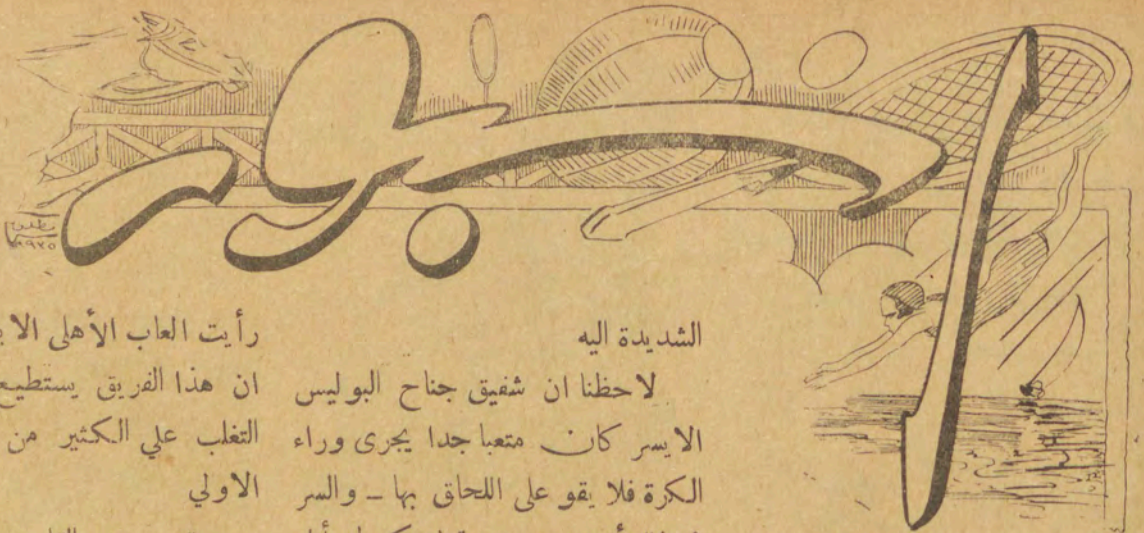 اسبور
الشديدة اليه
لاحظنا ان شفيق جناح البوليس
الايسر كان متعبا جدا يجرى وراء
الكرة فلا يقو على اللحاق بها – والسر
رأيت العاب الأهلى
ان هذا الفريق يستطيع
التغلب علي الكثير من
الاولي